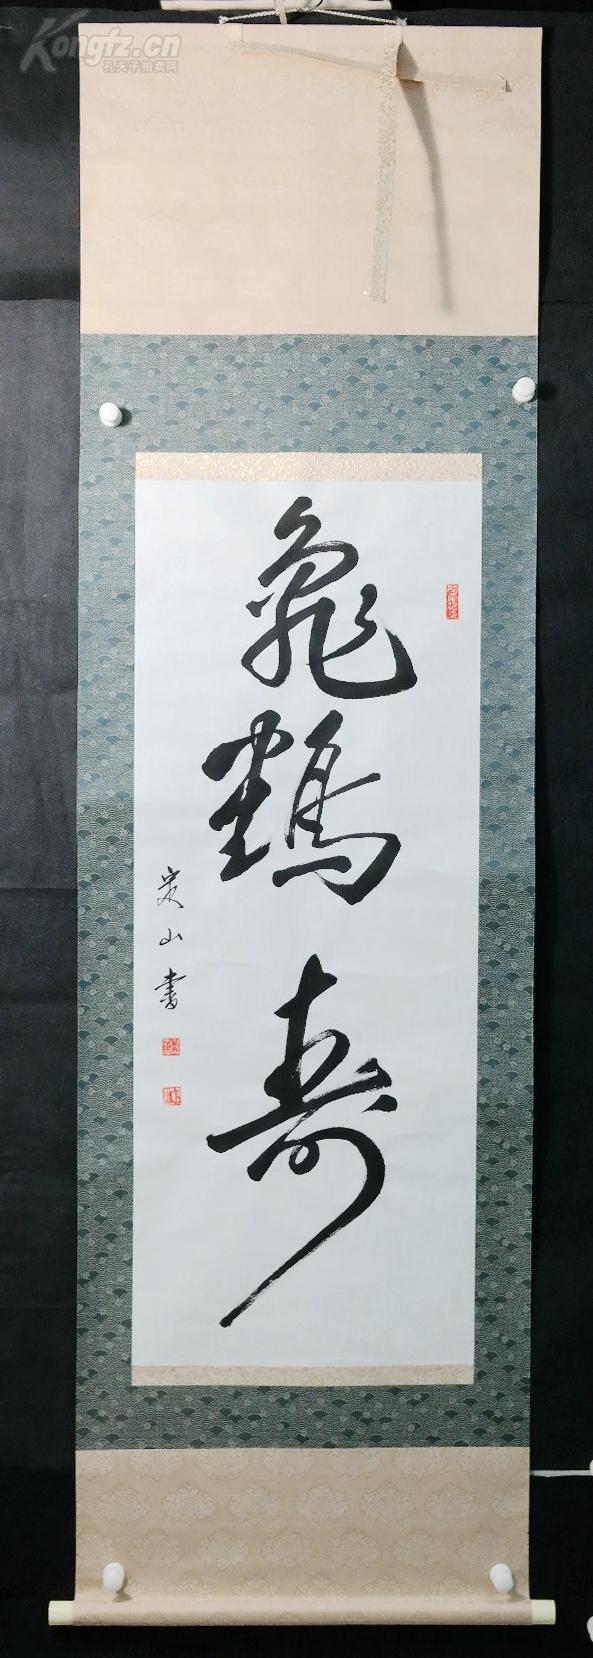 Kongfz.cn
孔夫子拍卖网
龜鶴寿
定山書